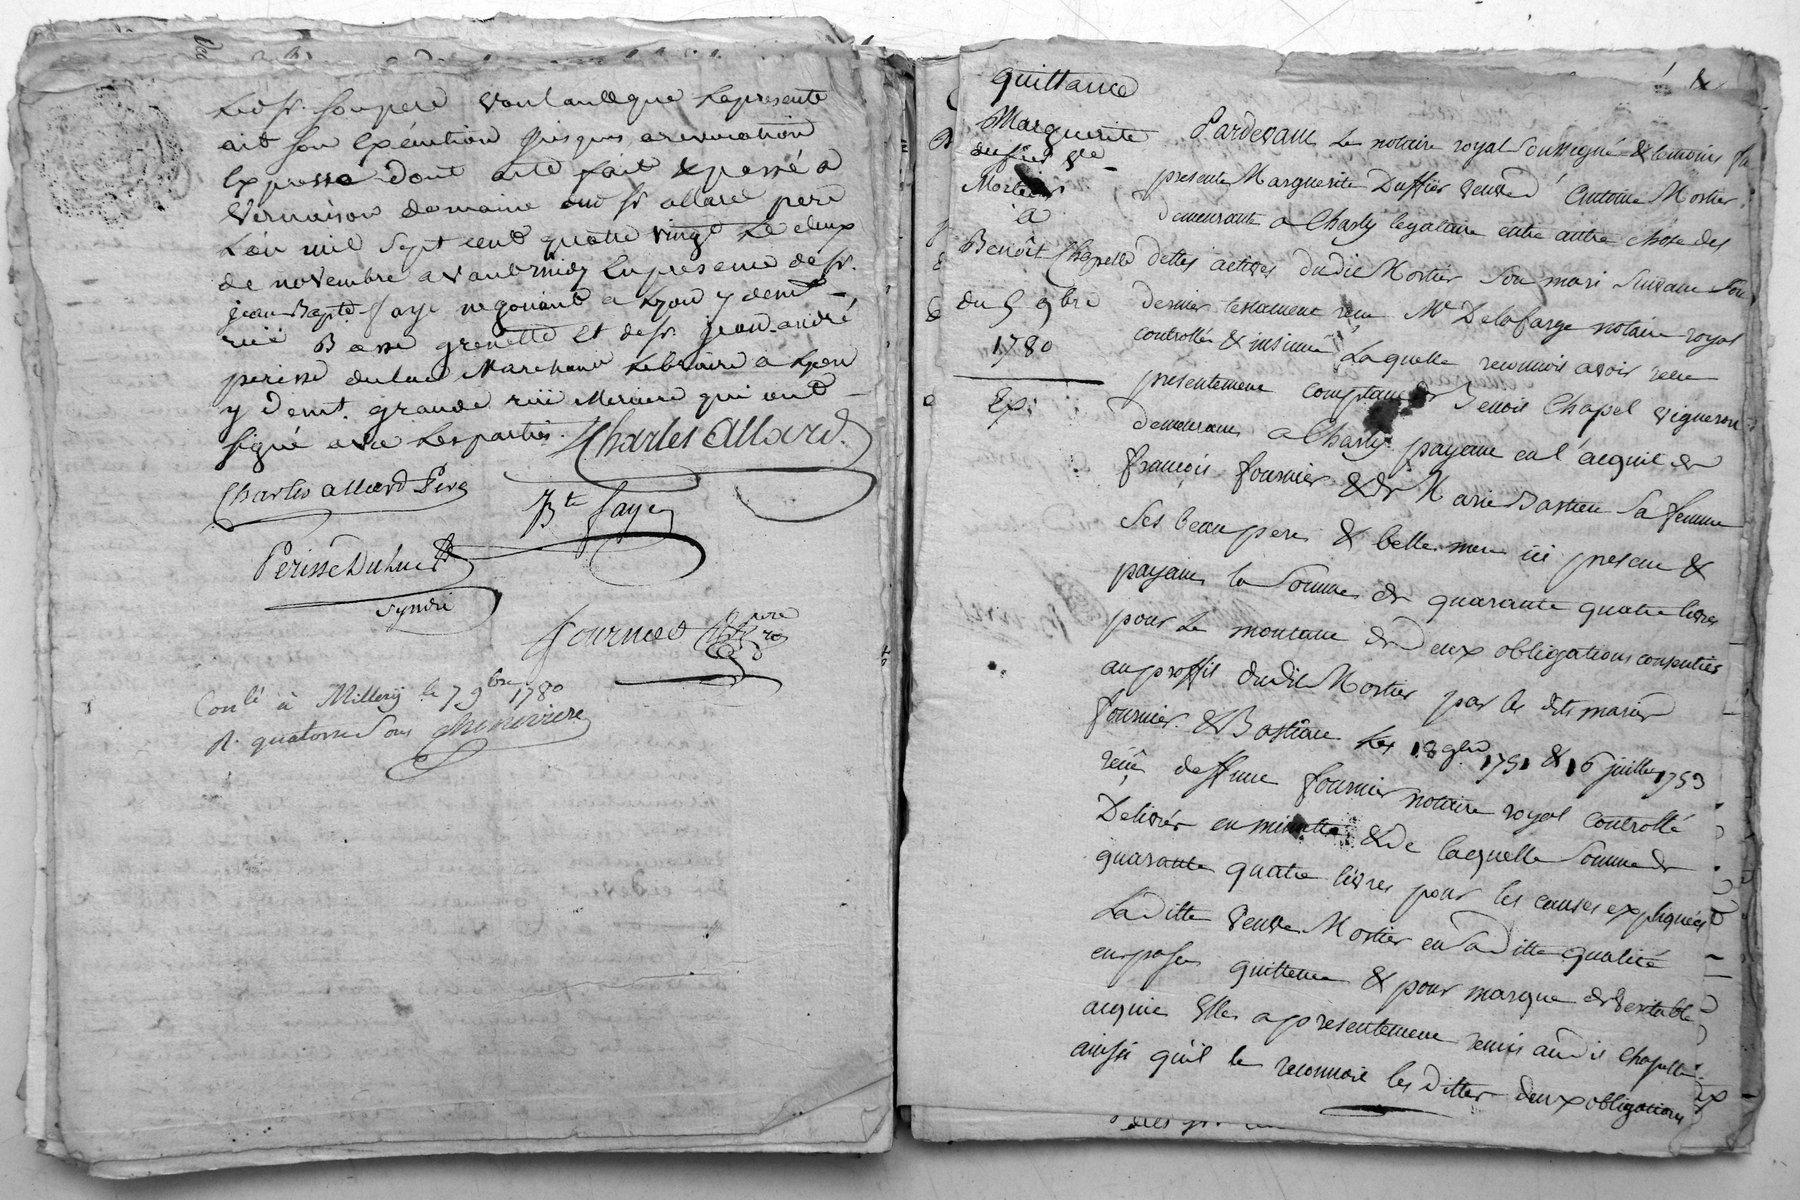 Ledt Sr. Soupere voulant que le presente
ait son Exécution jusques a revocation
Expresse dont acte fait & passé a
Vernaison domaine dud Sr allard pere
L'an mil sept cent quatre vingt Le deux
de novembre avant midy En presence de Sr.
jean Bapte faye negotiant a Lyon y demt
rüe Basse grenette et de Sr jean andré
perisse duluc Marchand Libraire a Lyon
y demt. grande rüe Merciere qui ont
signé avec Les parties. Charles Allard.
Charles allard Pere
J Bte faye
Perisse Duluc
Syndic
fournel
Conlé à Millery le 7 9bre 1780
R. quatorze Sous Chenevriere
quittance
Marguerite
duffier Ve
Mortier
a
Benoît Chapelle
du 5 9bre
1780
Exp:
Pardevant Le notaire royal Soussigné & temoins fut
presente Marguerite Duffier veuve d'Antoine Mortier
demeurante a Charly legataire entre autre chose des
dettes actives dudit Mortier son mari suivant son
dernier testament reçu Me Delafarge notaire royal
controllé & insinué Laquelle reconnois avoir reçu
presentement comptant de Benoit Chapel vigneron
demeurant a Charly payant en l'acquit de
françois fournier & de Marie Bastien sa femme
Ses beau pere & belle mere ici present &
payant la Somme de quarante quatre livres
pour Le montant de Deux obligations consenties
au proffit dudit Mortier par les dits mariés
fournier & Bastien Les 18 9bre 1751 & 16 juillet 1753
reçüe deffunt fournier notaire royal controllé
Delivré en minutte & de laquelle Somme de
quarante quatre livres pour les causes expliquées
Laditte veuve Mortier en Saditte qualité
en passe quittance & pour marque de veritable
acquit Elle a presentement remis audit Chapelle
ainsi qu'il le reconnoit les dittes deux obligations